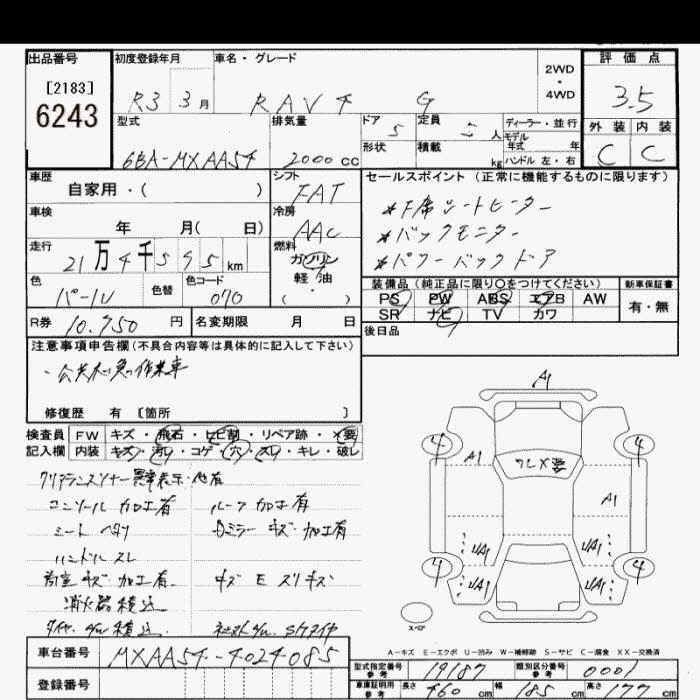 出品番号 初度登録年月 車名・グレード 2WD・4WD 評価点
[2183]
6243
R3 3月 RAV4 G 3.5
型式 排気量 ドア 定員 ディーラー・並行 外装 内装
6BA-MXAA54 2000cc 5 5人 モデル年式 年 C C
形状 積載 kg ハンドル 左・右
車歴 シフト セールスポイント (正常に機能するものに限ります)
自家用・( ) FAT
車検 冷房 *F席シートヒーター
年 月( 日) AAC *バックモニター
走行 燃料 *パワーバックドア
21万4千595km ガソリン
軽油
( )
色 色替 色コード 装備品 (純正品に限り○をつけてください) 新車保証書
パール 070 PS PW ABS エアB AW 有・無
SR ナビ TV カワ
R券 10.750円 名変期限 月 日 後日品
注意事項申告欄 (不具合内容等は具体的に記入して下さい)
・公共応急の作業車
修復歴 有 [箇所 ]
検査員 FW キズ・飛石・ヒビ割・リペア跡・×要
記入欄 内装 キズ・汚れ・コゲ・穴・スレ・キレ・破レ
クリアランスソナー異常表示 他有
コンソール 加工有 ルーフ 加工有
シート ヘタリ Dミラー キズ・加工有
ハンドル スレ
荷室 キズ 加工有
消火器積込
A1
4 A1 フレX要 4
A1
UA1 UA1
4 UA1 UA1 4
スペア
A-キズ E-エクボ U-凹み W-補修跡 S-サビ C-腐食 XX-交換済
車台番号 MXAA54-4024085
登録番号
型式指定番号 参考 19187 類別区分番号 参考 0001
車庫証明用 参考 長さ 460cm 幅 185cm 高さ 177cm